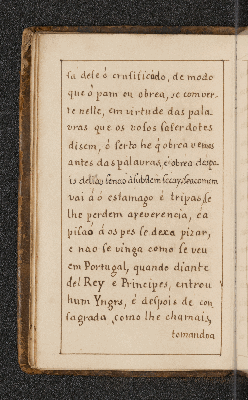 sa dele ó crusificádo, de modo
que ó pam ou obrea, se comver-
te nelle, em virtude das pala
vras que os vosos saserdotes
disem, ó serto he q̃ obrea vemos
antes das palavras, é obrea despo-
is dellas
vai á ó estamago é tripas, se
lhe perdem areverencia, ea
pisaõ á os pes se dexa pizar,
e nao se vinga como se veu
em Portugal, quando diante
del Rey e Principes, entrou
hum Yngrs, é despois de con
sagrada, como lhe chamais,
tomandoa